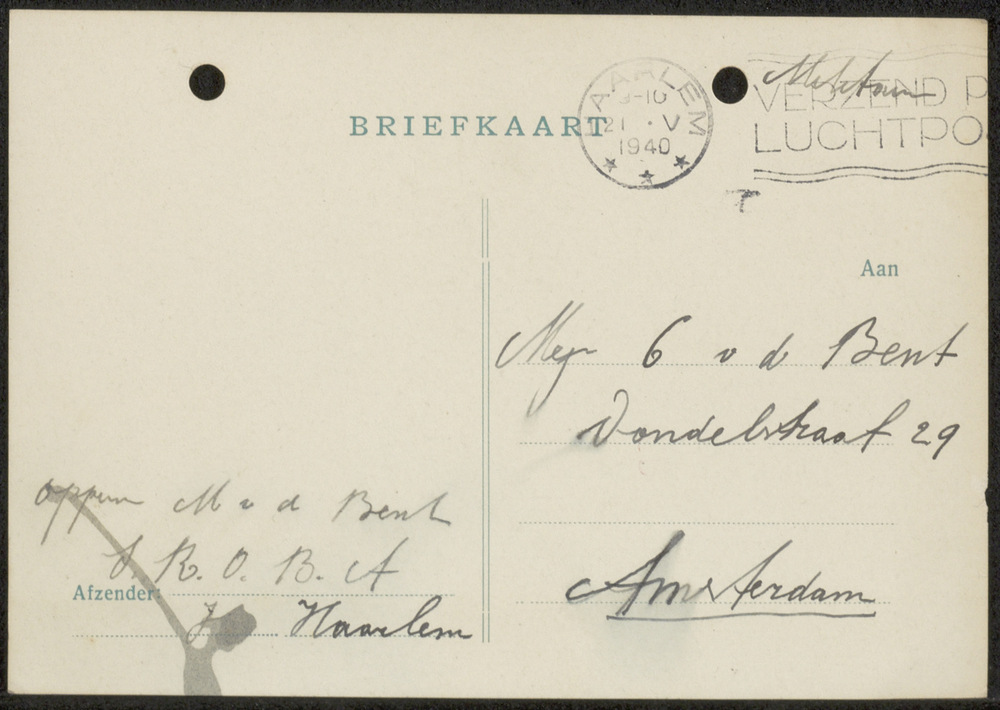 BRIEFKAART
HAARLEM
9-10
21 · V
1940
VERZEND P
LUCHTPO
Aan
Mej v d Bent
Vondelstraat 29
Amsterdam
M v d Bent
R. O. B. A
Afzender:
Haarlem